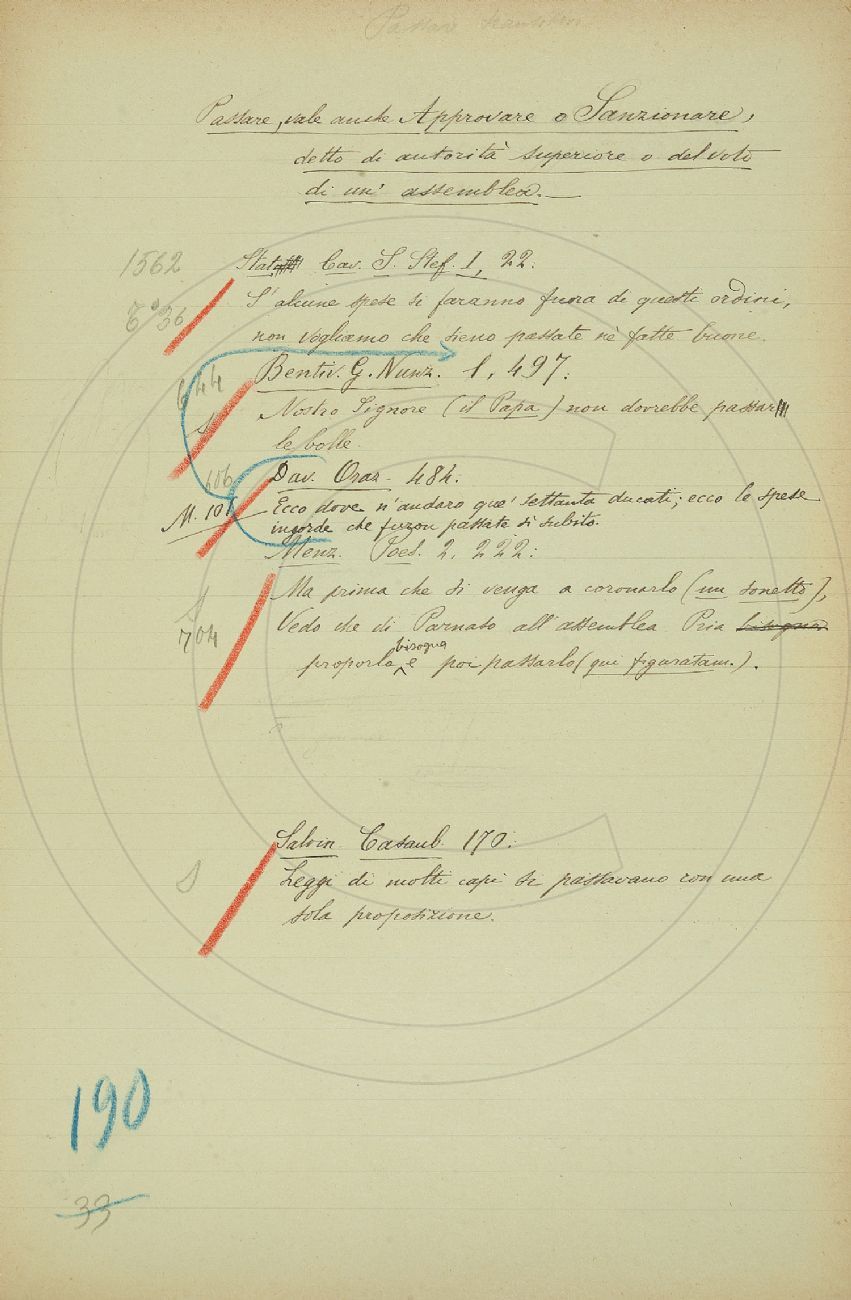 Passare
Passare, vale anche Approvare o Sanzionare,
detto di autorità superiore o del voto
di un' assemblea.
1562
Stat. Cav. S. Stef. I, 22:
S'alcune spese si faranno fuora di questi ordini,
non vogliamo che sieno passate nè fatte buone.
644
Bentiv. G. Nunz. 1, 497:
Nostro Signore (il Papa) non dovrebbe passar
le bolle.
606
Dav. Oraz. 484.
M. 101
Ecco dove n'andaro que' settanta ducati; ecco le spese
ingorde che furon passate sì subito.
Menz. Poes. 2, 222:
Ma prima che si venga a coronarlo (un sonetto),
Vedo che di Parnaso all'assemblea Pria bisogna
704
proporlo bisogna e poi passarlo (qui figuratam.).
Salvin. Casaub. 170:
S
Leggi di molti capi si passavano con una
sola proposizione.
190
33